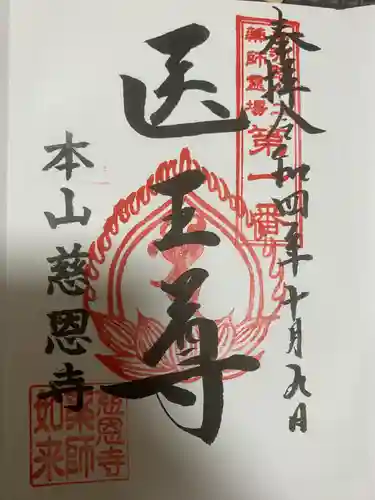 奉拝 令和四年十月九日
薬師霊場
第一番
医王尊
本山慈恩寺
慈恩寺
薬師
如来